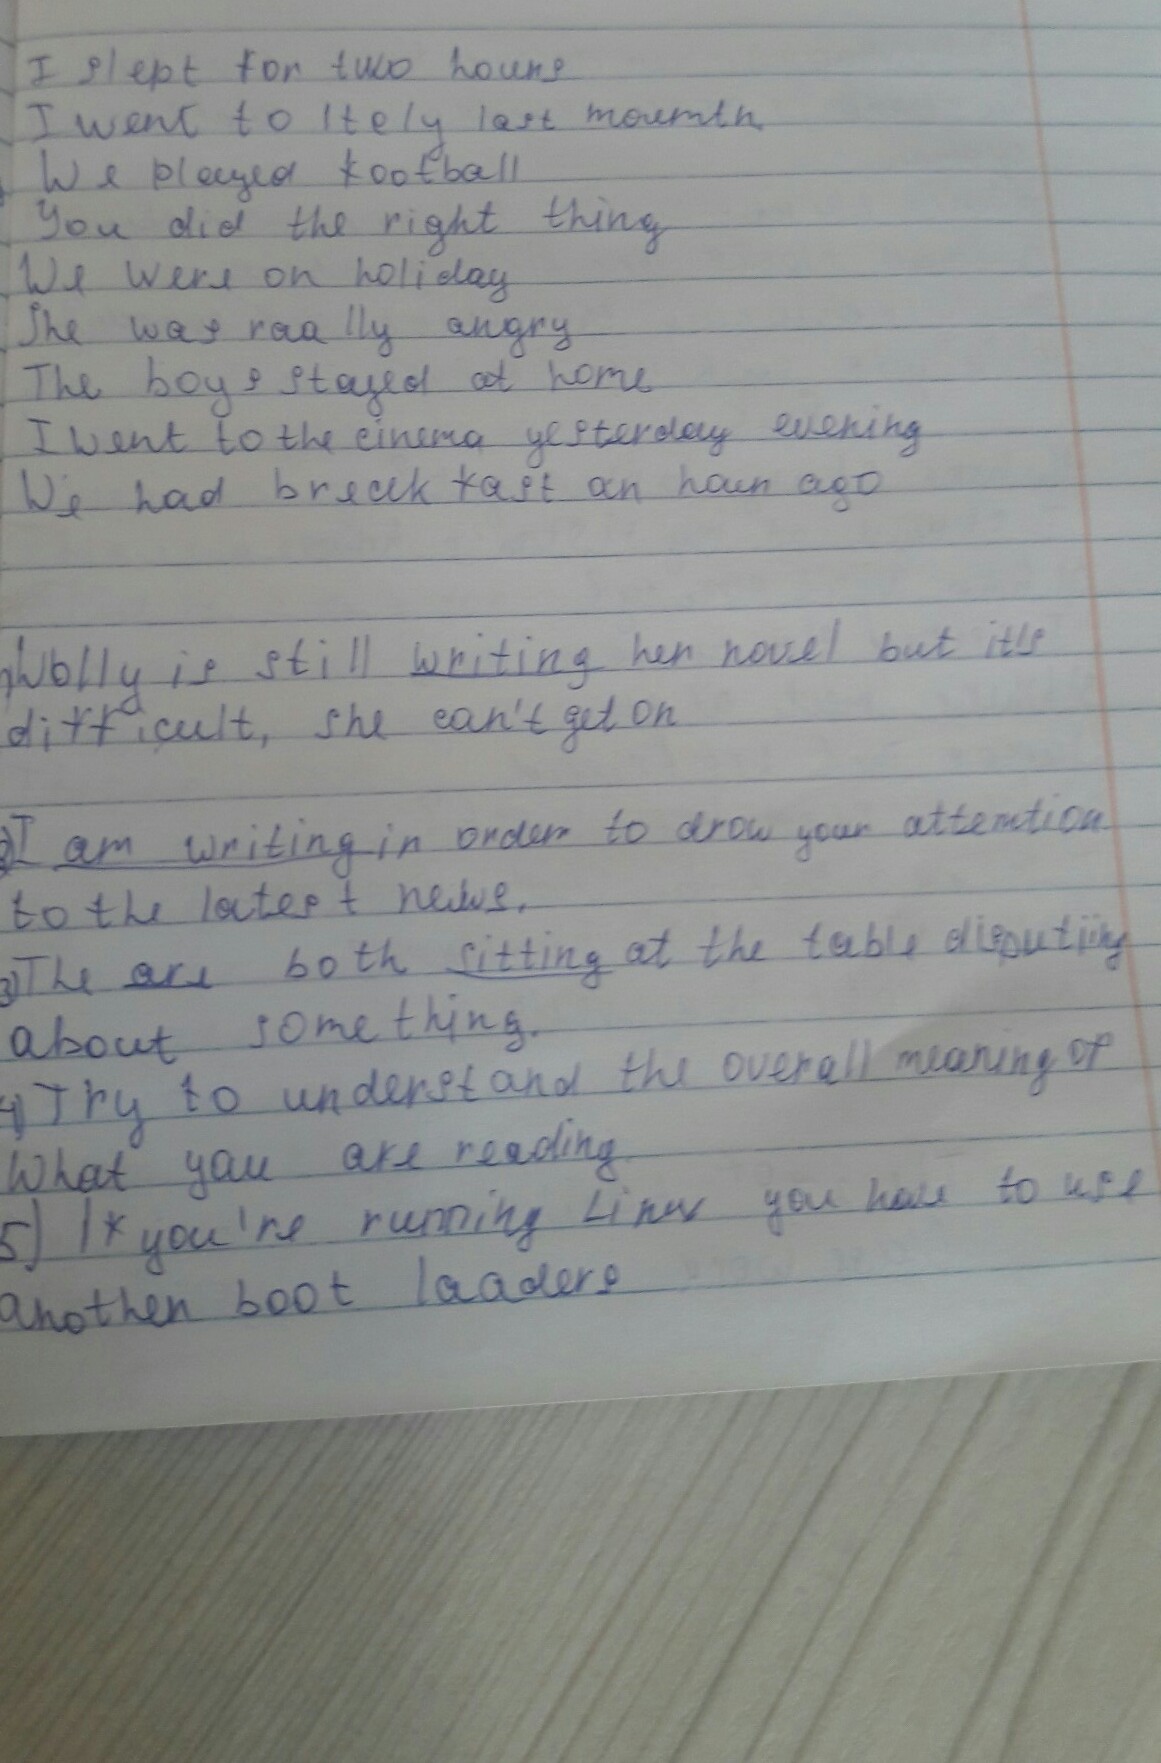 I slept for two hours
I went to Itely last mounth
We played football
You did the right thing
We were on holiday
She was raally angry
The boys stayed at home
I went to the cinema yesterday evening
We had breakfast an houn ago
Wolly is still writing her novel but it's
difficult, she can't get on
2) I am writing in order to drow your attemtion
to the latest news.
3) The are both sitting at the table disputiing
about something.
4) Try to understand the overall meaning of
What you are reading
5) If you're running Linux you have to use
anothen boot laaders